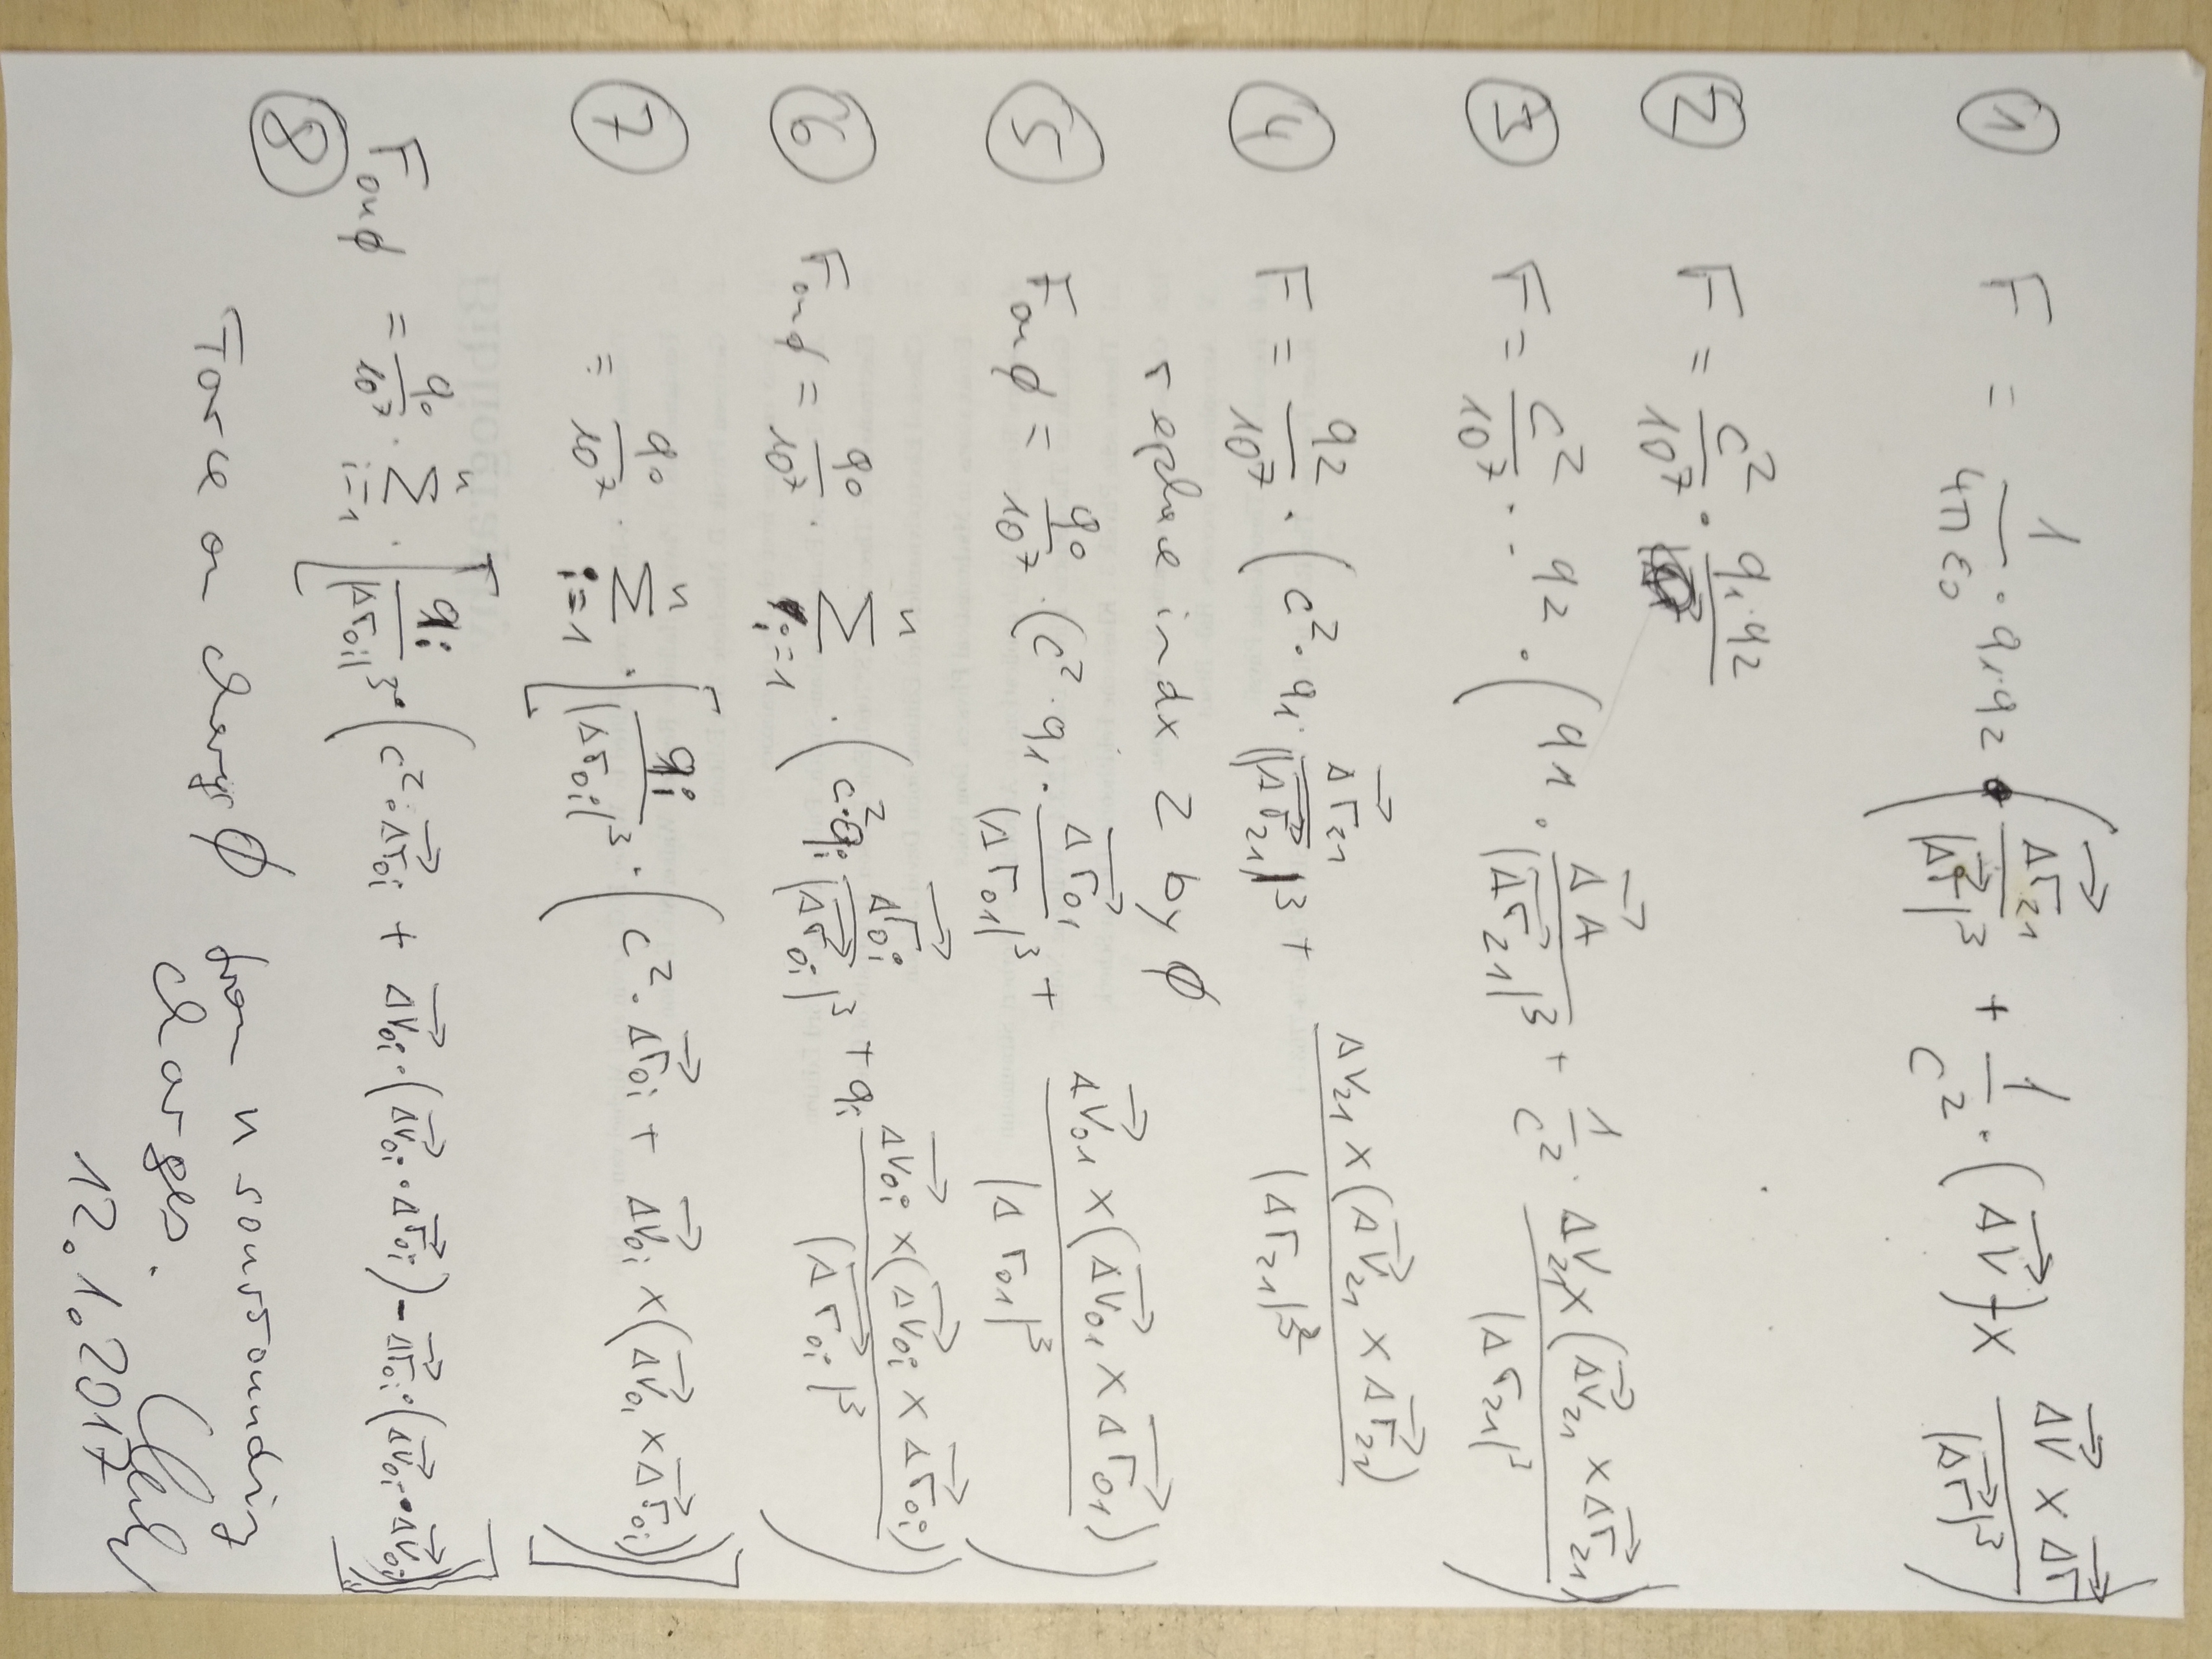 ① F = 1/(4πε₀) · q₁·q₂ · ( Δr⃗₂₁/|Δr⃗|³ + 1/c² · (Δv⃗) × (Δv⃗ × Δr⃗)/|Δr⃗|³ )
② F = c²/10⁷ · q₁·q₂
③ F = c²/10⁷ · · q₂ · ( q₁ · Δ⃗A/|Δr⃗₂₁|³ + 1/c² · Δv₂₁ × (Δv⃗₂₁ × Δr⃗₂₁)/|Δr₂₁|³ )
④ F = q₂/10⁷ · ( c² · q₁ · Δr⃗₂₁/|Δr⃗₂₁|³ + Δv₂₁ × (Δv⃗₂₁ × Δr⃗₂₁)/|Δr₂₁|³
replace indx 2 by Ø
⑤ F on Ø = q₀/10⁷ · ( c² · q₁ · Δr⃗₀₁/|Δr₀₁|³ + Δv⃗₀₁ × (Δv⃗₀₁ × Δr⃗₀₁)/|Δr₀₁|³ )
⑥ F on Ø = q₀/10⁷ · Σⁿᵢ₌₁ · ( c² · qᵢ Δr⃗₀ᵢ/|Δr⃗₀ᵢ|³ + qᵢ Δv⃗₀ᵢ × (Δv⃗₀ᵢ × Δr⃗₀ᵢ)/|Δr⃗₀ᵢ|³ )
⑦ = q₀/10⁷ · Σⁿᵢ₌₁ · [ qᵢ/|Δr₀ᵢ|³ · ( c² · Δr⃗₀ᵢ + Δv⃗₀ᵢ × (Δv⃗₀ᵢ × Δr⃗₀ᵢ) ) ]
⑧ F on Ø = q₀/10⁷ · Σⁿᵢ₌₁ · [ qᵢ/|Δr₀ᵢ|³ · ( c² · Δr⃗₀ᵢ + Δv⃗₀ᵢ · (Δv⃗₀ᵢ · Δr⃗₀ᵢ) - Δr⃗₀ᵢ · (Δv⃗₀ᵢ · Δv⃗₀ᵢ) ) ]
Force on charge Ø from n sourrounding
charges.
12.1.2017